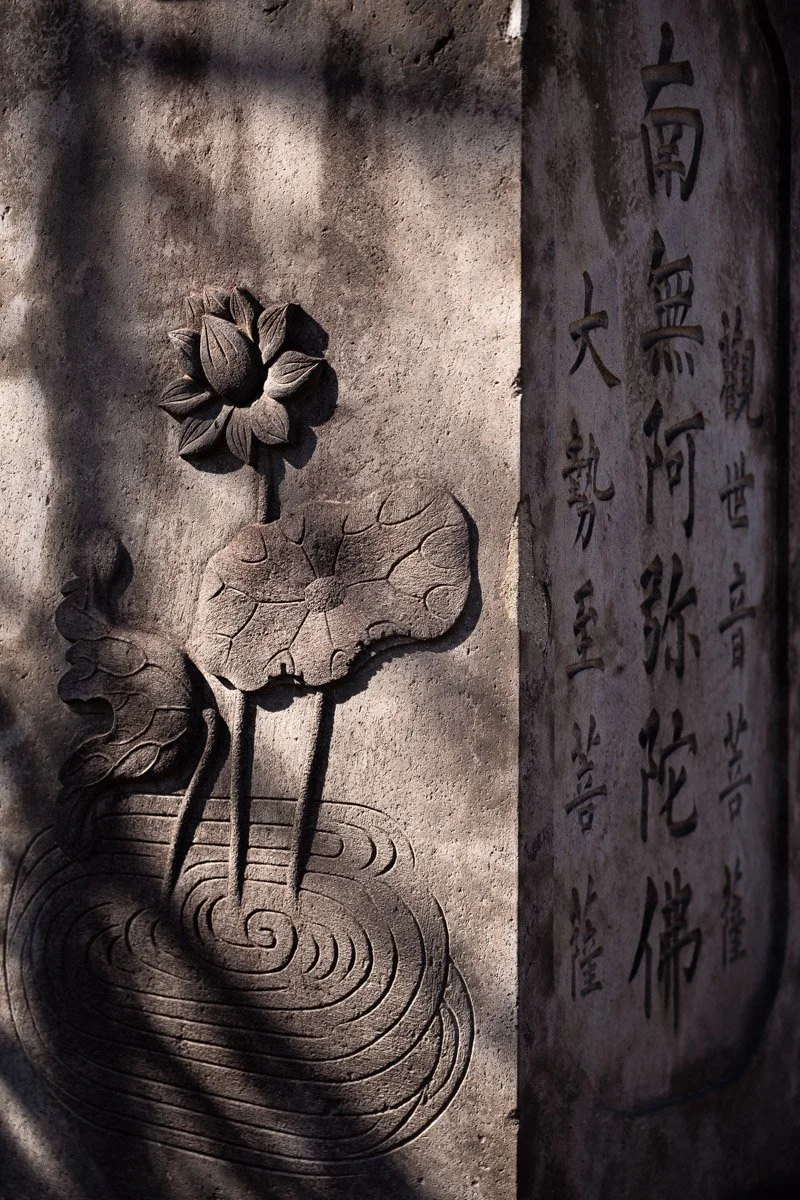 觀世音菩薩
南無阿弥陀佛
大勢至菩薩